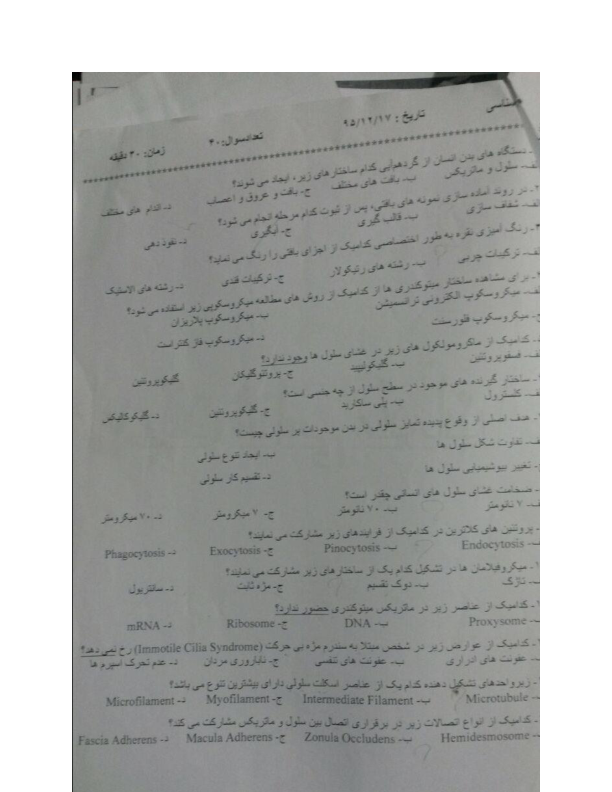 شناسی
تاریخ : ۹۵/۱۲/۱۷
تعدادسوال:۳۰
زمان: ۳۰ دقیقه
- دستگاه های بدن انسان از گردهم‌آیی کدام ساختارهای زیر، ایجاد می شوند؟
لف- سلول و ماتریکس ب- بافت های مختلف ج- بافت و عروق و اعصاب د- اندام های مختلف
۲- در روند آماده سازی نمونه های بافتی، پس از ثبوت کدام مرحله انجام می شود؟
لف- شفاف سازی ب- قالب گیری ج- آبگیری د- نفوذ دهی
۳- رنگ آمیزی نقره به طور اختصاصی کدامیک از اجزای بافتی را رنگ می نماید؟
لف- ترکیبات چربی ب- رشته های رتیکولار ج- ترکیبات قندی د- رشته های الاستیک
- برای مشاهده ساختار میتوکندری ها از کدامیک از روش های مطالعه میکروسکوپی زیر استفاده می شود؟
ف- میکروسکوپ الکترونی ترانسمیشن ب- میکروسکوپ پلاریزان
ج- میکروسکوپ فلورسنت د- میکروسکوپ فاز کنتراست
- کدامیک از ماکرومولکول های زیر در غشای سلول ها وجود ندارد؟
ف- فسفوپروتئین ب- گلیکولیپید ج- پروتئوگلیکان گلیکوپروتئین
- ساختار گیرنده های موجود در سطح سلول از چه جنسی است؟
ف- کلسترول ب- پلی ساکارید ج- گلیکوپروتئین د- گلیکوکالیکس
- هدف اصلی از وقوع پدیده تمایز سلولی در بدن موجودات پر سلولی چیست؟
ف- تفاوت شکل سلول ها ب- ایجاد تنوع سلولی
ج- تغییر بیوشیمیایی سلول ها د- تقسیم کار سلولی
- ضخامت غشای سلول های انسانی چقدر است؟
ف- ۷ نانومتر ب- ۷۰ نانومتر ج- ۷ میکرومتر د- ۷۰ میکرومتر
- پروتئین های کلاترین در کدامیک از فرایندهای زیر مشارکت می نمایند؟
Endocytosis ب- Pinocytosis ج- Exocytosis د- Phagocytosis
- میکروفیلامان ها در تشکیل کدام یک از ساختارهای زیر مشارکت می نمایند؟
- تاژک ب- دوک تقسیم ج- مژه ثابت د- سانتریول
- کدامیک از عناصر زیر در ماتریکس میتوکندری حضور ندارد؟
Proxysome ب- DNA ج- Ribosome د- mRNA
- کدامیک از عوارض زیر در شخص مبتلا به سندرم مژه بی حرکت (Immotile Cilia Syndrome) رخ نمی دهد؟
- عفونت های ادراری ب- عفونت های تنفسی ج- ناباروری مردان د- عدم تحرک اسپرم ها
- زیرواحدهای تشکیل دهنده کدام یک از عناصر اسکلت سلولی دارای بیشترین تنوع می باشد؟
Microtubule ب- Intermediate Filament ج- Myofilament د- Microfilament
- کدامیک از انواع اتصالات زیر در برقراری اتصال بین سلول و ماتریکس مشارکت می کند؟
Hemidesmosome ب- Zonula Occludens ج- Macula Adherens د- Fascia Adherens